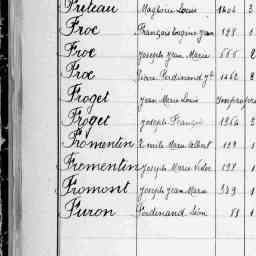 Friteau Magloire Louis 1404 2
Froc François Eugène Jean 198 1
Froc Joseph Jean Marie 555 2
Froc Pierre Ferdinand 1462 8
Froget Jean Marie Louis
Froget Joseph François 1264 3
Fromentin Emile Marie Albert 1
Fromentin Joseph Marie Victor 197 1
Fromont Joseph Jean Marie 349 1
Furon Ferdinand Léon 1